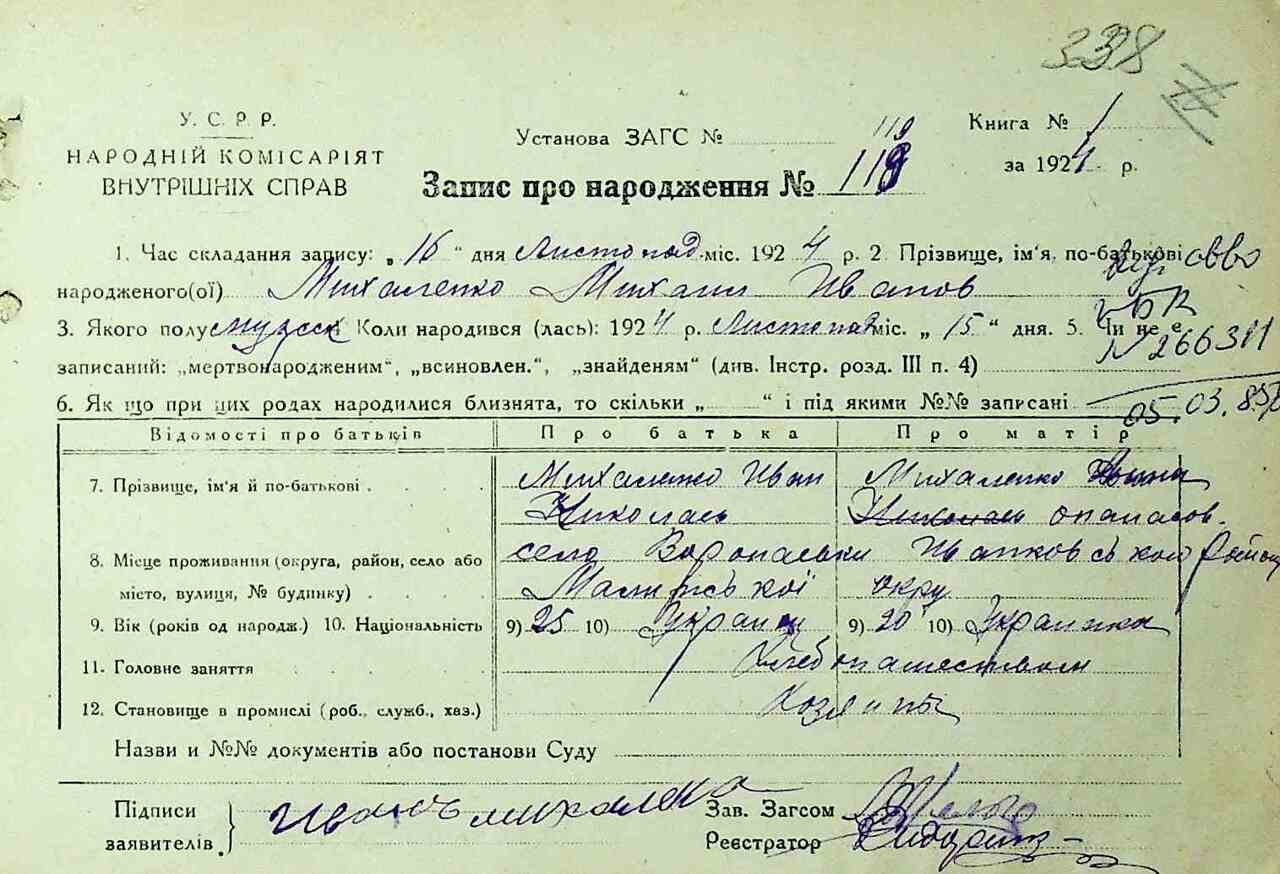 338
У. С. Р. Р.
НАРОДНІЙ КОМІСАРІЯТ
ВНУТРІШНІХ СПРАВ
Установа ЗАГС №
Книга № 1
за 1924 р.
119
Запис про народження № 119
1. Час складання запису: „16“ дня Листопад міс. 1924 р. 2. Прізвище, ім'я, по-батькові
народженого(ої) Михаленко Михаил Иванов
3. Якого полу мужеск Коли народився (лась): 1924 р. Листопад міс. „15“ дня. 5. Чи не є
N 266311
записаний: „мертвонародженим“, „всиновлен.“, „знайденям“ (див. Інстр. розд. III п. 4)
05.03.85
6. Як що при цих родах народилися близнята, то скільки „ “ і під якими №№ записані
Відомості про батьків Про батька Про матір
7. Прізвище, ім'я й по-батькові . Михаленко Иван Михаленко
Николаев опанасов.
8. Місце проживання (округа, район, село або село Иванковського район
місто, вулиця, № будинку) . . . . Малинської окру
9. Вік (років од народж.) 10. Національність 9) 25 10) Украин 9) 20 10) Украинка
11. Головне заняття . . . . Хлебопашеством
12. Становище в промислі (роб., служб., хаз.)
Назви и №№ документів або постанови Суду
Підписи Иванъ михаленко Зав. Загсом
заявителів. Реєстратор